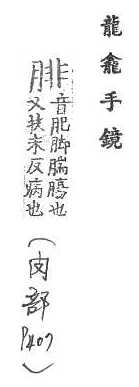 龍龕手鏡
腓音肥脚腨膓也
又扶末反病也
(肉部
P407)